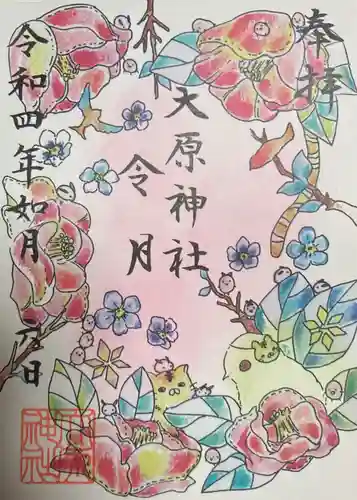 奉拝
大原神社
令月
令和四年如月元日